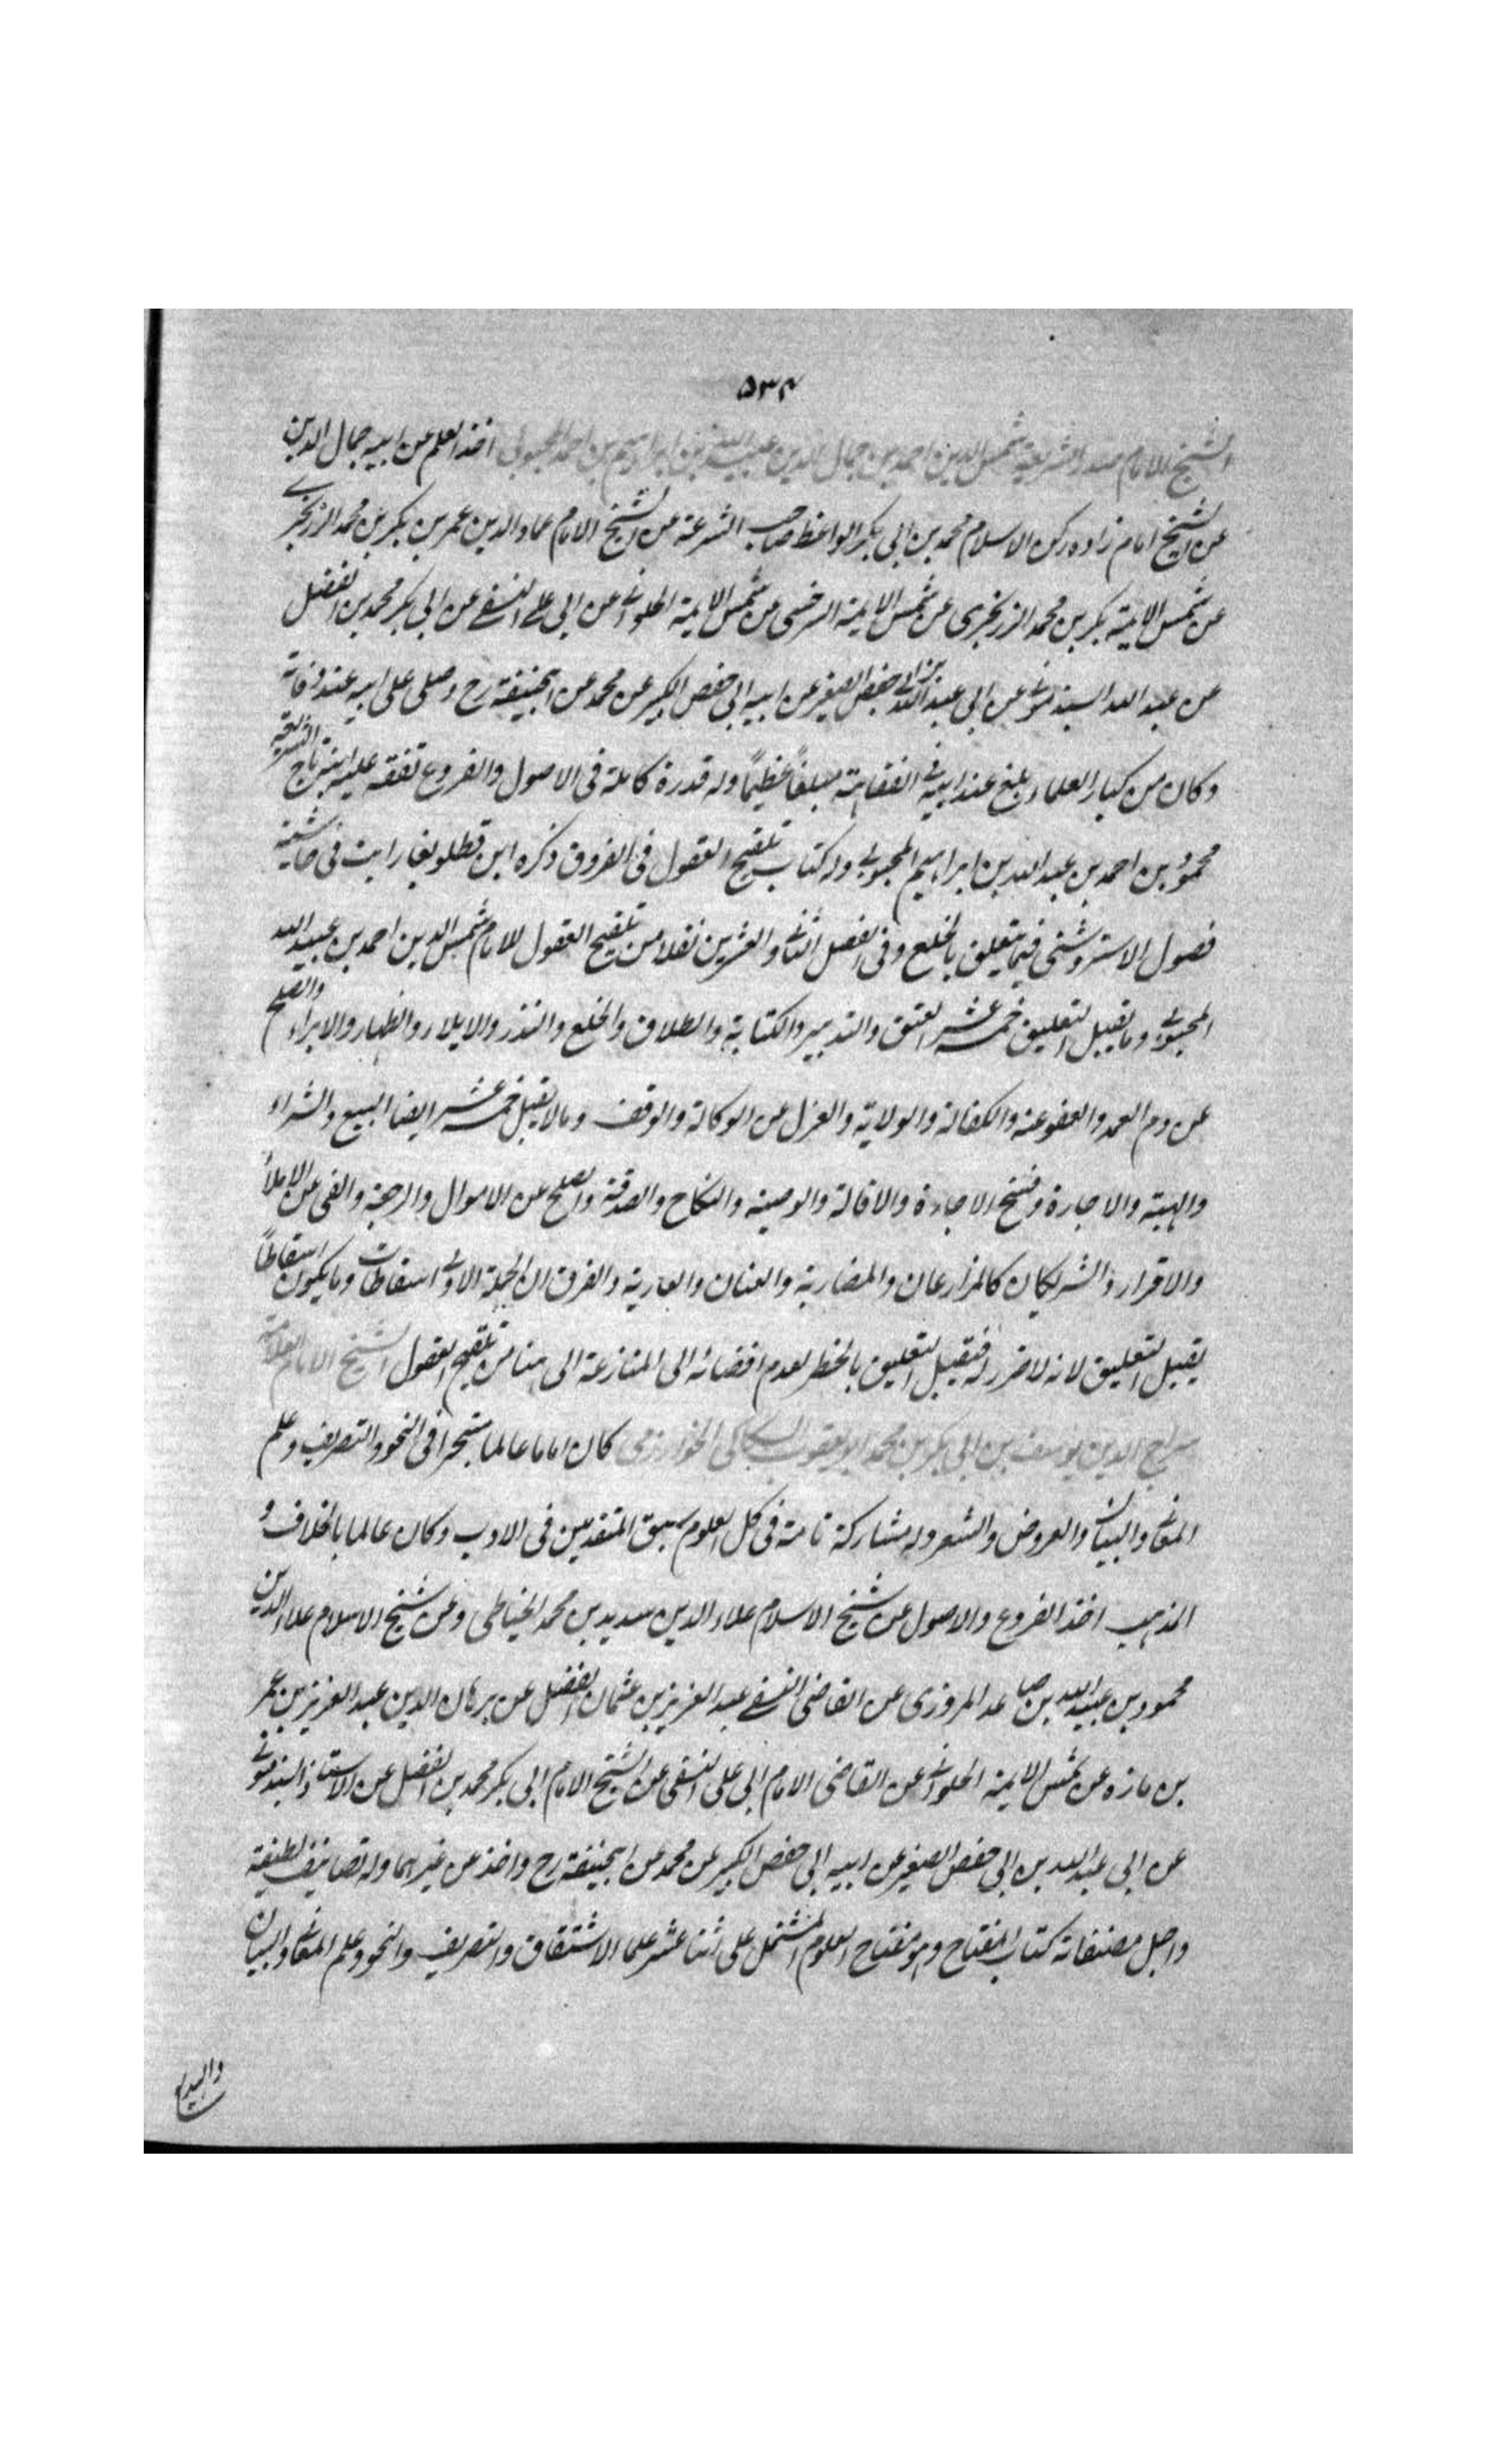 ٥٣٤
الشيخ الامام صدر الشريعة شمس الدين احمد بن جمال الدين عبيد الله بن ابراهيم بن احمد المحبوبي اخذ العلم عن ابيه جمال الدين
عن الشيخ امام زاده ركن الاسلام محمد بن ابى بكر الواعظ صاحب الشرعة عن الشيخ الامام عماد الدين عمر بن بكر بن محمد الزرنجرى
عن شمس الايمة بكر بن محمد الزرنجرى عن شمس الايمة السرخسى عن شمس الايمة الحلوانى عن ابى على النسفى عن ابى بكر محمد بن الفضل
عن عبد الله السبذمونى عن ابى عبد الله بن ابى حفص الصغير عن ابيه ابى حفص الكبير عن محمد عن ابيحنيفة رح وصلى على ابيه عند وفاته
وكان من كبار العلماء بلغ عند ابيه فى الفقاهة مبلغاً عظيماً وله قدرة كاملة فى الاصول والفروع تفقه عليه ابنه تاج الشريعة
محمود بن احمد بن عبيد الله بن ابراهيم المحبوبى وله كتاب تلقيح العقول فى الفروق ذكره ابن قطلوبغا رايت فى حاشية
فصول الاستروشنى فيما يتعلق بالخلع وفى الفصل الثانى والعشرين نقلا من تلقيح العقول للامام شمس الدين احمد بن عبيد الله
المحبوبى وما يقبل التعليق خمسة عشر العتق والتدبير والكتابة والطلاق والخلع والنذر والايلاء والظهار والابراء والصلح
عن دم العمد والعفو عنه والكفالة والولاية والعزل عن الوكالة والوقف وما لا يقبل خمسة عشر ايضا البيع والشراء
والهبة والاجارة وفسخ الاجارة والاقالة والوصية والنكاح والصدقة والصلح عن الاموال والرجعة والفى عن الايلاء
والاقرار والشريكان كالمزارعان والمضاربة والعنان والعارية والفرق ان الجملة الاولى اسقاطات وما يكون اسقاطاً
يقبل التعليق لانه لا ضرر له فيقبل التعليق بالخطر لعدم افضائه الى المنازعة الى هنا من تلقيح العقول الشيخ الامام العلامة
سراج الدين يوسف بن ابى بكر بن محمد ابو يعقوب السكاكى الخوارزمى كان اماما عالما متبحرا فى النحو والتصريف وعلم
المعانى والبيان والعروض والشعر وله مشاركة تامة فى كل العلوم سبق المتقدمين فى الادب وكان عالما بالخلاف و
المذهب اخذ الفروع والاصول عن شيخ الاسلام علاء الدين سديد بن محمد الخياطى وعن شيخ الاسلام علاء الدين
محمود بن عبيد الله بن صاعد المروزى عن القاضى النسفى عبد العزيز بن عثمان الفضل عن برهان الدين عبد العزيز بن عمر
بن مازه عن شمس الايمة الحلوانى عن القاضى الامام ابى على النسفى عن الشيخ الامام ابى بكر محمد بن الفضل عن الاستاذ السبذمونى
عن ابى عبد الله بن ابى حفص الصغير عن ابيه ابى حفص الكبير عن محمد عن ابيحنيفة رح واخذ عن غيرهما وله تصانيف لطيفة
واجل مصنفاته كتاب المفتاح وهو مفتاح العلوم المشتمل على اثنا عشر علما الاشتقاق والتصريف والنحو وعلم المعانى والبيان
والبديع